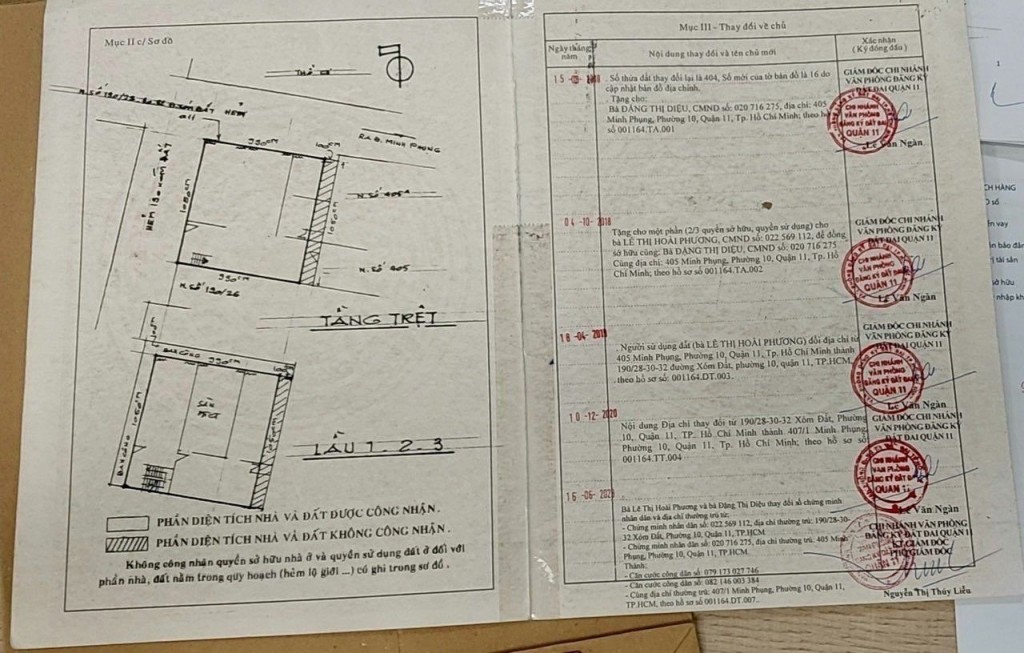 Mục II c/ Sơ đồ
THỔ CƯ
ĐẤT HẺM
RA Đ. MINH PHỤNG
990cm
HẺM 190 XÓM ĐẤT
1050cm
1050cm
N. SỐ 405A
N. SỐ 405
990cm
N. SỐ 190/26
TẦNG TRỆT
BAN CÔNG 990cm
BAN CÔNG
1050cm
SÂN
1050cm
LẦU 1. 2. 3
PHẦN DIỆN TÍCH NHÀ VÀ ĐẤT ĐƯỢC CÔNG NHẬN.
PHẦN DIỆN TÍCH NHÀ VÀ ĐẤT KHÔNG CÔNG NHẬN.
Không công nhận quyền sở hữu nhà ở và quyền sử dụng đất ở đối với
phần nhà, đất nằm trong quy hoạch (hẻm lộ giới ...) có ghi trong sơ đồ.
Mục III - Thay đổi về chủ
Ngày tháng năm
Nội dung thay đổi và tên chủ mới
Xác nhận
(Ký đóng dấu)
. Số thửa đất thay đổi lại là 404, Số mới của tờ bản đồ là 16 do
cập nhật bản đồ địa chính.
. Tặng cho:
Bà ĐẶNG THỊ DIỆU, CMND số: 020 716 275, địa chỉ: 405
Minh Phụng, Phường 10, Quận 11, Tp. Hồ Chí Minh; theo hồ
sơ 001164.TA.001
GIÁM ĐỐC CHI NHÁNH
VĂN PHÒNG ĐĂNG KÝ
ĐẤT ĐAI QUẬN 11
CHI NHÁNH
VĂN PHÒNG
ĐĂNG KÝ ĐẤT ĐAI
QUẬN 11
Lê Văn Ngàn
04-10-2018
Tặng cho một phần (2/3 quyền sở hữu, quyền sử dụng) cho
bà LÊ THỊ HOÀI PHƯƠNG, CMND số: 022 569 112, để đồng
sở hữu cùng: Bà ĐẶNG THỊ DIỆU, CMND số: 020 716 275.
Cùng địa chỉ: 405 Minh Phụng, Phường 10, Quận 11, Tp. Hồ
Chí Minh; theo hồ sơ 001164.TA.002
GIÁM ĐỐC CHI NHÁNH
VĂN PHÒNG ĐĂNG KÝ
ĐẤT ĐAI QUẬN 11
CHI NHÁNH
VĂN PHÒNG
ĐĂNG KÝ ĐẤT ĐAI
QUẬN 11
Lê Văn Ngàn
. Người sử dụng đất (bà LÊ THỊ HOÀI PHƯƠNG) đổi địa chỉ từ
405 Minh Phụng, Phường 10, Quận 11, Tp. Hồ Chí Minh thành
190/28-30-32 đường Xóm Đất, phường 10, quận 11, TP.HCM,
theo hồ sơ số: 001164.DT.003.
GIÁM ĐỐC CHI NHÁNH
VĂN PHÒNG ĐĂNG KÝ
ĐẤT ĐAI QUẬN 11
CHI NHÁNH
VĂN PHÒNG
ĐĂNG KÝ ĐẤT ĐAI
QUẬN 11
Lê Văn Ngàn
10-12-2020
Nội dung Địa chỉ thay đổi từ 190/28-30-32 Xóm Đất, Phường
10, Quận 11, TP. Hồ Chí Minh thành 407/1 Minh Phụng,
Phường 10, Quận 11, Tp. Hồ Chí Minh; theo hồ sơ số
001164.TT.004
GIÁM ĐỐC CHI NHÁNH
VĂN PHÒNG ĐĂNG KÝ
ĐẤT ĐAI QUẬN 11
CHI NHÁNH
VĂN PHÒNG
ĐĂNG KÝ ĐẤT ĐAI
QUẬN 11
Lê Văn Ngàn
Bà Lê Thị Hoài Phương và bà Đặng Thị Diệu thay đổi số chứng minh
nhân dân và địa chỉ thường trú từ:
- Chứng minh nhân dân số: 022 569 112, thường trú: 190/28-30-
32 Xóm Đất, Phường 10, Quận 11, TP.HCM
- Chứng minh nhân dân số: 020 716 275, thường trú: 405 Minh
Phụng, Phường 10, Quận 11, TP.HCM
Thành:
- Căn cước công dân số: 079 173 027 746
- Căn cước công dân số: 082 146 003 384
- Cùng địa chỉ thường trú: 407/1 Minh Phụng, Phường 10, Quận 11,
TP.HCM, theo hồ sơ số 001164.DT.007.
CHI NHÁNH VĂN PHÒNG
ĐĂNG KÝ ĐẤT ĐAI QUẬN 11
KT. GIÁM ĐỐC
PHÓ GIÁM ĐỐC
Nguyễn Thị Thúy Liễu
CH HÀNG
vay
tài sản
sở hữu